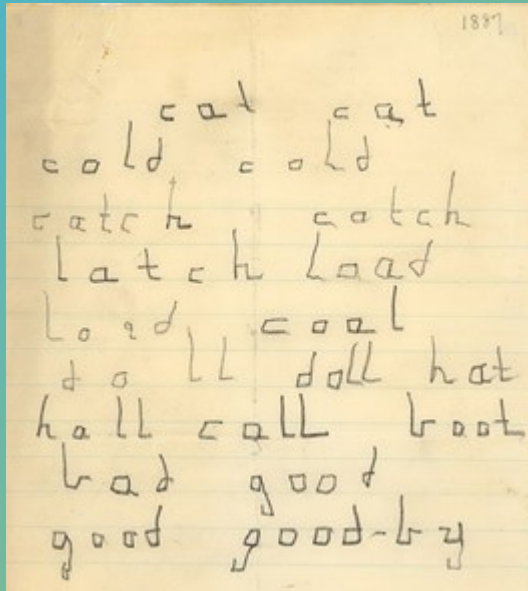 1887
cat cat
cold cold
catch catch
latch load
load coal
doll doll hat
hall call boot
bad good
good good-by